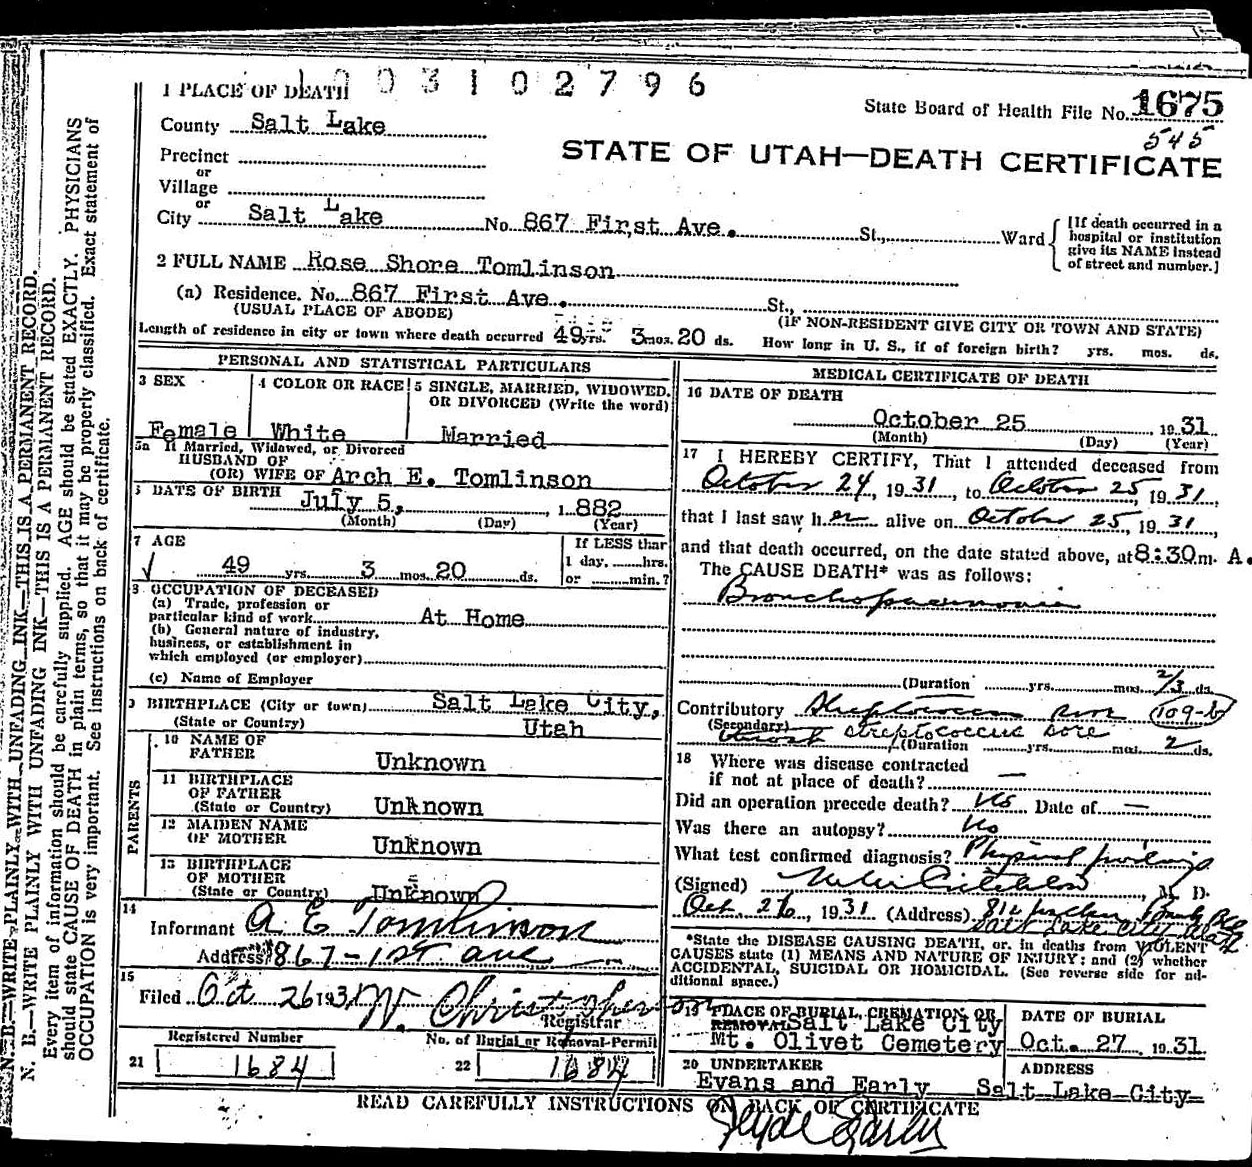 1 PLACE OF DEATH 1003102796
State Board of Health File No. 1675
545
County Salt Lake
STATE OF UTAH—DEATH CERTIFICATE
Precinct
or
Village
or
City Salt Lake No. 867 First Ave. St., Ward
[If death occurred in a hospital or institution give its NAME instead of street and number.]
2 FULL NAME Rose Shore Tomlinson
(a) Residence. No. 867 First Ave. St.,
(USUAL PLACE OF ABODE) (IF NON-RESIDENT GIVE CITY OR TOWN AND STATE)
Length of residence in city or town where death occurred 49 yrs. 3 mos. 20 ds. How long in U. S., if of foreign birth? yrs. mos. ds.
PERSONAL AND STATISTICAL PARTICULARS
3 SEX 4 COLOR OR RACE 5 SINGLE, MARRIED, WIDOWED,
OR DIVORCED (Write the word)
Female White Married
5a If Married, Widowed, or Divorced
HUSBAND OF
(OR) WIFE OF Arch E. Tomlinson
DATES OF BIRTH July 5, 1882
(Month) (Day) (Year)
7 AGE If LESS than
1 day, hrs.
49 yrs. 3 mos. 20 ds. or min.?
8 OCCUPATION OF DECEASED
(a) Trade, profession or
particular kind of work At Home
(b) General nature of industry,
business, or establishment in
which employed (or employer)
(c) Name of Employer
9 BIRTHPLACE (City or town) Salt Lake City,
(State or Country) Utah
PARENTS
10 NAME OF
FATHER Unknown
11 BIRTHPLACE
OF FATHER
(State or Country) Unknown
12 MAIDEN NAME
OF MOTHER Unknown
13 BIRTHPLACE
OF MOTHER
(State or Country) Unknown
14
Informant A E Tomlinson
Address 867 - 1st ave
15
Filed Oct 26 1931 W. Christopherson
Registrar
Registered Number No. of Burial or Removal-Permit
21 1684 22 1684
MEDICAL CERTIFICATE OF DEATH
16 DATE OF DEATH
October 25 1931
(Month) (Day) (Year)
17 I HEREBY CERTIFY, That I attended deceased from
October 24, 1931, to October 25, 1931,
that I last saw her alive on October 25, 1931,
and that death occurred, on the date stated above, at 8:30 m. A.
The CAUSE DEATH* was as follows:
Bronchopneumonia
(Duration yrs. mos. 2/3 ds.
Contributory Streptococcus sore 109-b
(Secondary) throat streptococcus sore
(Duration yrs. mos. 2 ds.
18 Where was disease contracted
if not at place of death? —
Did an operation precede death? No Date of —
Was there an autopsy? No
What test confirmed diagnosis? Physical findings
(Signed) M. D.
Oct. 26, 1931 (Address) 812 Walker Bank Bldg
Salt Lake City Utah
*State the DISEASE CAUSING DEATH, or, in deaths from VIOLENT
CAUSES state (1) MEANS AND NATURE OF INJURY; and (2) whether
ACCIDENTAL, SUICIDAL OR HOMICIDAL. (See reverse side for additional space.)
19 PLACE OF BURIAL, CREMATION, OR DATE OF BURIAL
REMOVAL Salt Lake City
Mt. Olivet Cemetery Oct. 27, 1931
20 UNDERTAKER ADDRESS
Evans and Early Salt Lake City
READ CAREFULLY INSTRUCTIONS ON BACK OF CERTIFICATE
Clyde Early
N. B.—WRITE PLAINLY—WITH UNFADING INK—THIS IS A PERMANENT RECORD.
N. B.—WRITE PLAINLY WITH UNFADING INK—THIS IS A PERMANENT RECORD.
Every item of information should be carefully supplied. AGE should be stated EXACTLY. PHYSICIANS
should state CAUSE OF DEATH in plain terms, so that it may be properly classified. Exact statement of
OCCUPATION is very important. See instructions on back of certificate.